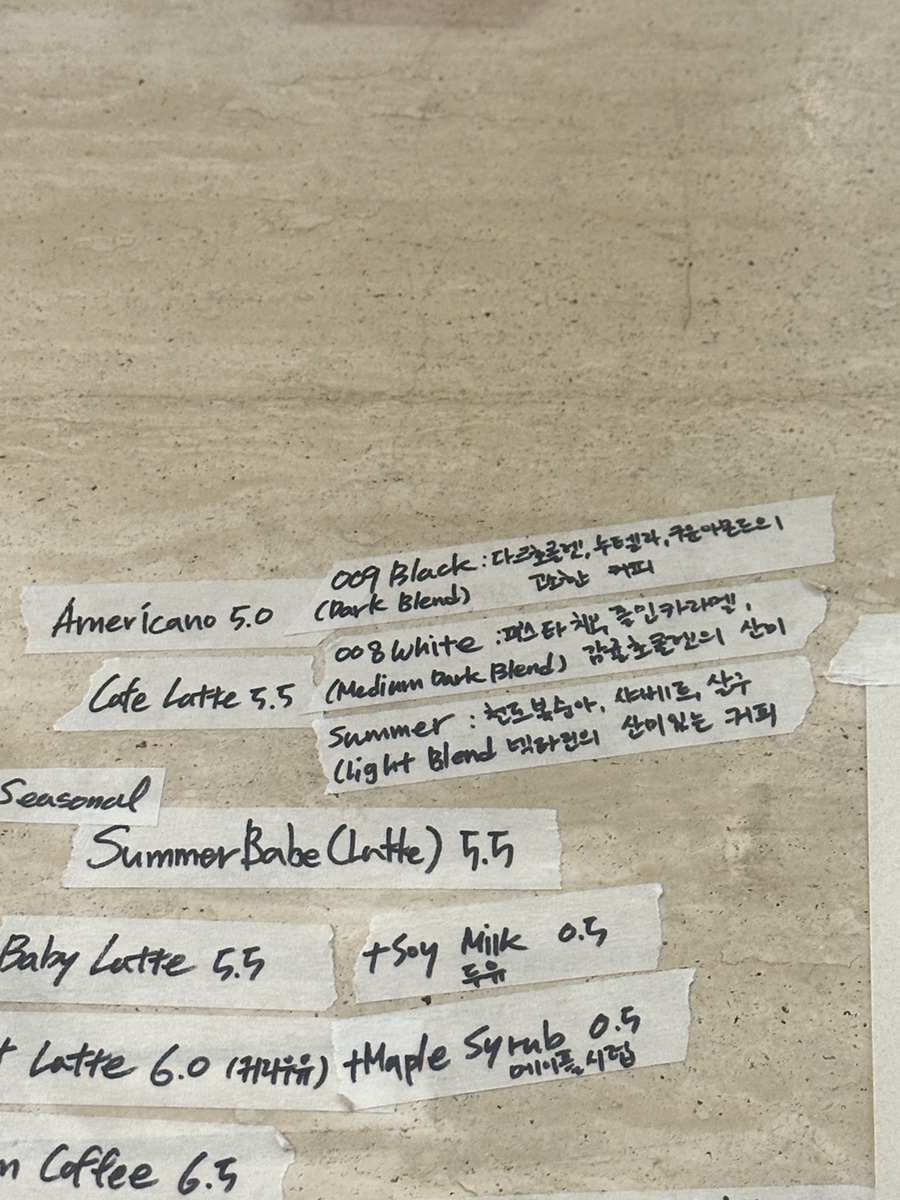 Americano 5.0
009 Black : 다크초콜렛, 누텔라, 구운아몬드의
(Dark Blend) 고소한 커피
Cafe Latte 5.5
008 White : 피스타치오, 졸인카라멜,
(Medium Dark Blend) 감귤초콜렛의 산미
Summer : 천도복숭아, 샤베트, 살구
(Light Blend 넥타린의 산미있는 커피
Seasonal
Summer Babe (Latte) 5.5
Baby Latte 5.5
+Soy Milk 0.5
두유
Latte 6.0 (귀리우유)
+Maple Syrub 0.5
메이플시럽
Coffee 6.5